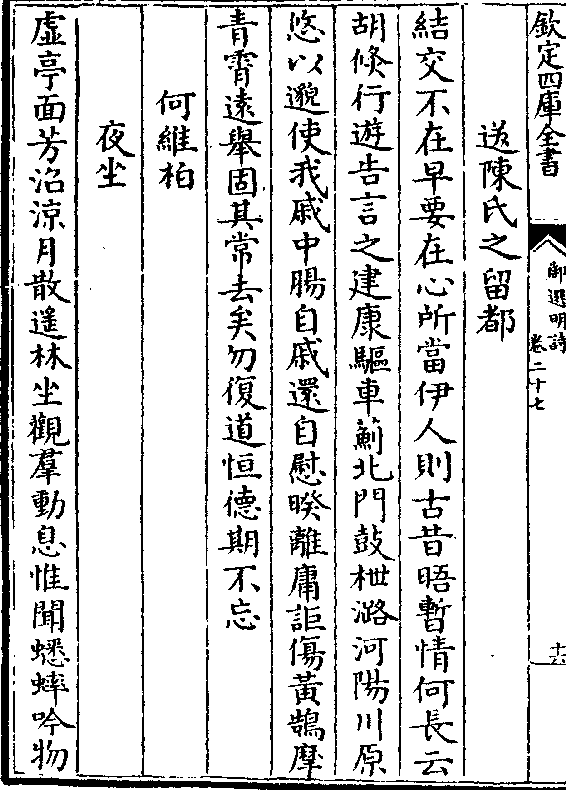 欽定四庫全書
御選明詩
卷二十七
十六
送陳氏之留都
結交不在早要在心所當伊人則古昔晤暫情何長云
胡倏行遊告言之建康驅車薊北門鼓枻潞河陽川原
悠以邈使我戚中腸自戚還自慰暌離庸詎傷黃鵠摩
青霄遠舉固其常去矣勿復道恒德期不忘
何維柏
夜坐
虛亭面芳沼涼月散遥林坐觀羣動息惟聞蟋蟀吟物